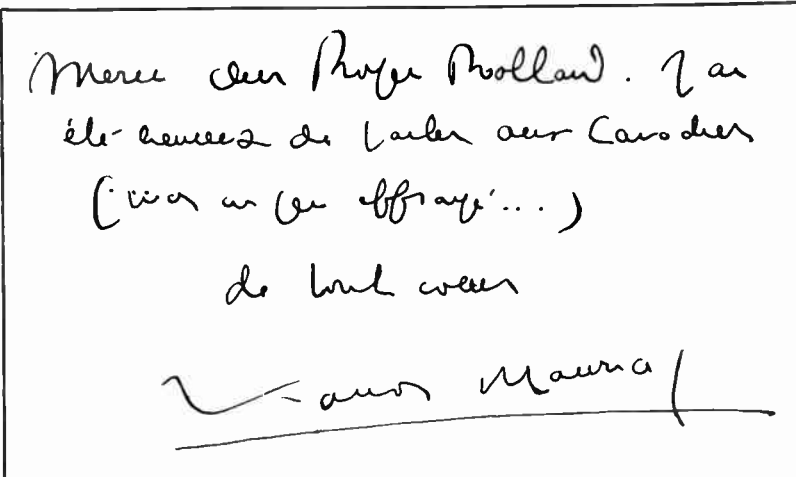 Merci cher Roger Rolland. J'ai
été heureux de parler aux Canadiens
( un peu effrayé... )
de tout cœur
François Mauriac